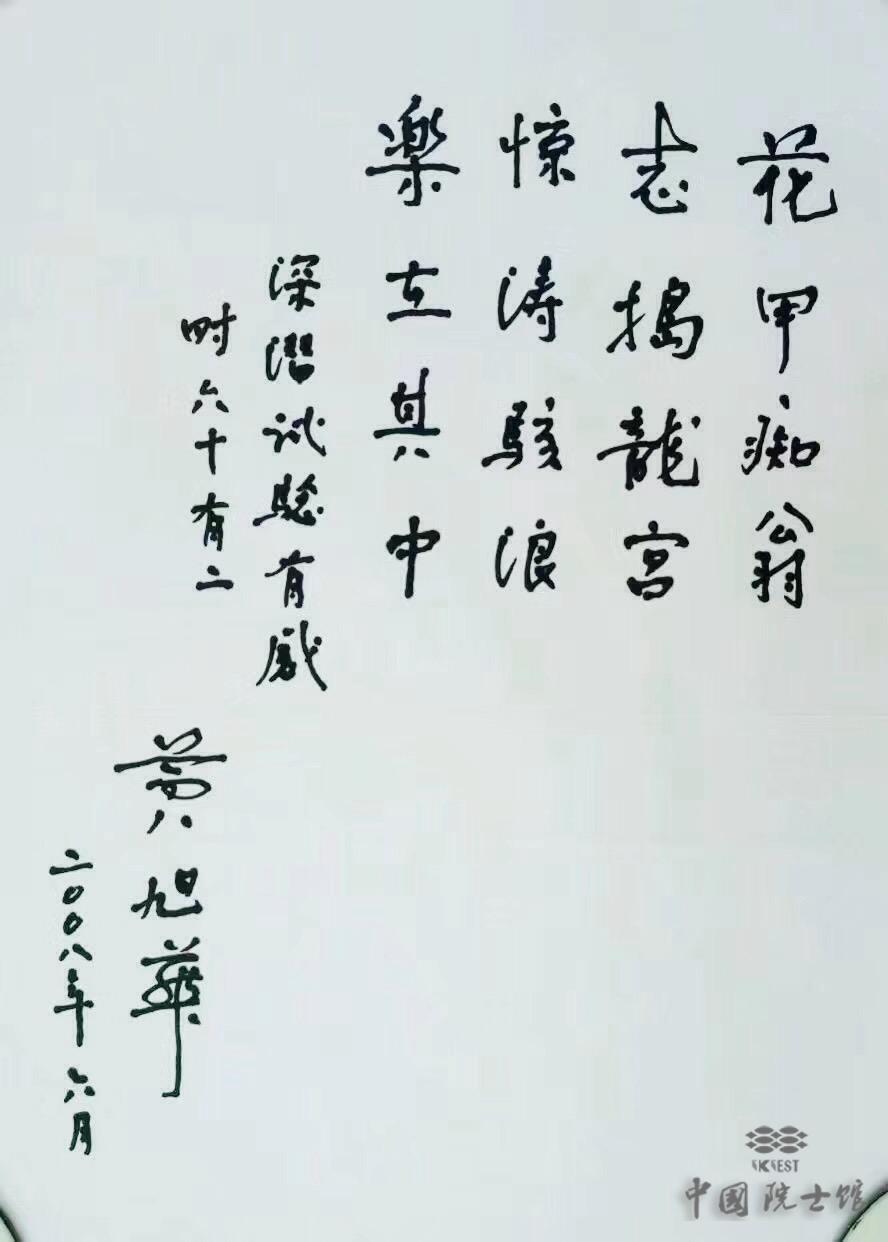 花甲痴翁
志捣龍宫
惊涛骇浪
楽在其中
深潜试验有感
时六十有二
黄旭華
二００八年六月
IKIEST
中國院士馆